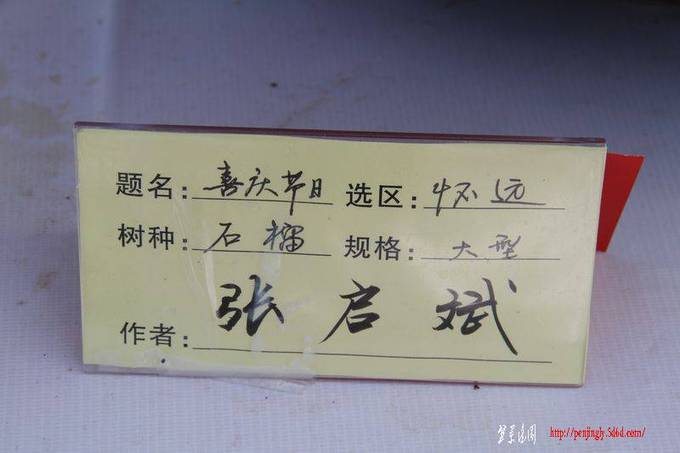 题名：喜庆节日 选区：怀远
树种：石榴 规格：大型
作者：张启斌
http://penjingly.5d6d.com/